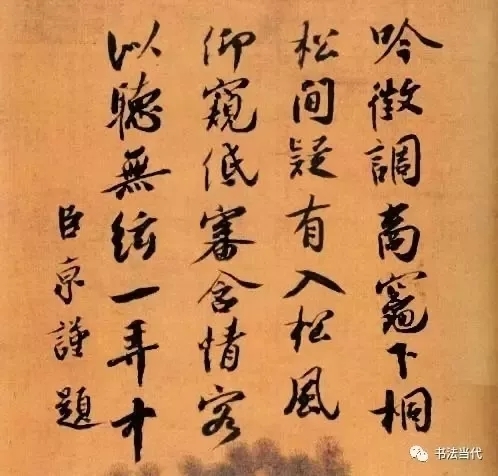 吟徵調商竈下桐
松間疑有入松風
仰窺低審含情客
以聽無絃一弄中
臣京謹題
书法当代